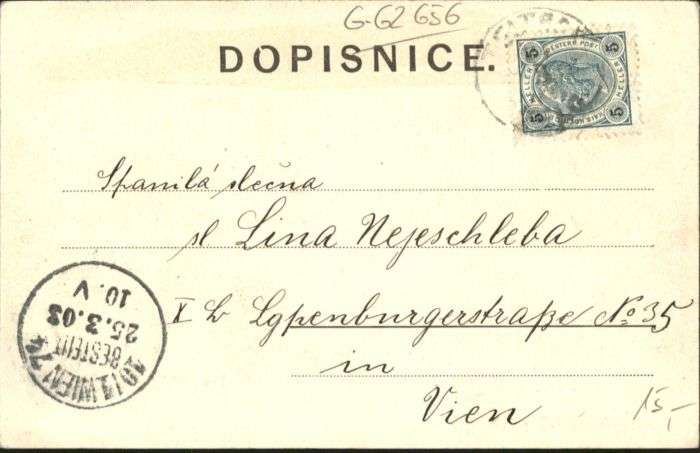 G-62656
DOPISNICE.
5 5
5 5
Spanilá slečna
sl Lina Nejeschleba
X b Lgpenburgerstraße No 35
in
Vien
15,-
10/1 WIEN 74
BESTELLT
25.3.03
10.V